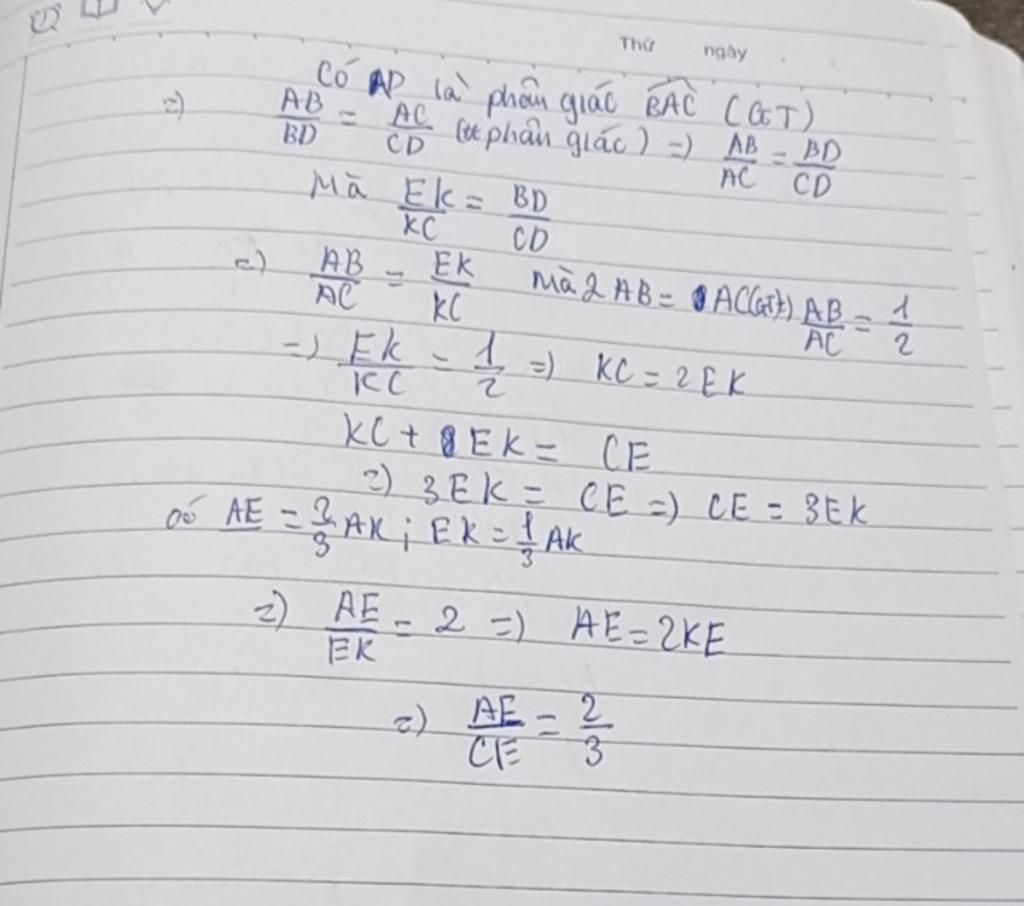 Thứ ngày
Có AD là phân giác BAC (GT)
=) AB/BD = AC/CD (tc phân giác) =) AB/AC = BD/CD
Mà EK/KC = BD/CD
=) AB/AC = EK/KC Mà 2AB = AC(GT) AB/AC = 1/2
=) EK/KC = 1/2 =) KC = 2EK
KC + EK = CE
=) 3EK = CE =) CE = 3EK
có AE = 2/3 AK ; EK = 1/3 AK
=) AE/EK = 2 =) AE = 2KE
=) AE/CE = 2/3